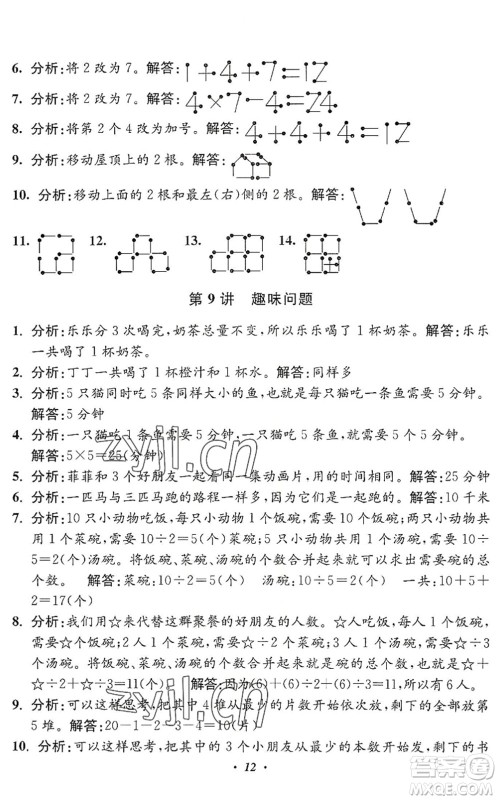 6. 分析:将2改为7。解答:1+4+7=12
7. 分析:将2改为7。解答:4×7-4=24
8. 分析:将第2个4改为加号。解答:4+4+4=12
9. 分析:移动屋顶上的2根。解答:
10. 分析:移动上面的2根和最左(右)侧的2根。解答:
11. 12. 13. 14.
第9讲 趣味问题
1. 分析:乐乐分3次喝完,奶茶总量不变,所以乐乐喝了1杯奶茶。解答:乐乐
一共喝了1杯奶茶。
2. 分析:丁丁一共喝了1杯橙汁和1杯水。解答:同样多
3. 分析:5只猫同时吃5条同样大小的鱼,也就是每只猫吃1条鱼的时间。
解答:5分钟
4. 分析:一只猫吃1条鱼需要5分钟,一只猫吃5条鱼需要5个5分钟。
解答:5×5=25(分钟)
5. 分析:菲菲和3个好朋友一起看着同一集动画片,用的时间相同。解答:25分钟
6. 分析:一匹马与三匹马跑的路程一样多,因为它们是一起跑的。解答:10千米
7. 分析:10只小动物吃饭,每只小动物需要1个饭碗,需要10个饭碗;两只小动物共
用1个菜碗,需要10÷2=5(个)菜碗;五只小动物共用1个汤碗,需要10÷
5=2(个)汤碗。将饭碗、菜碗、汤碗的个数合并起来就可以求出一共需要几个
碗。 解答:菜碗:10÷2=5(个) 汤碗:10÷5=2(个) 一共:10+5+
2=17(个)
8. 分析:我们用☆来代替这群聚餐的好朋友的人数。☆人吃饭,每人需要一个饭碗,
需要☆个饭碗;两人一个菜碗,需要☆÷2个菜碗;三人一个汤碗,需要☆÷3个汤
碗。将饭碗、菜碗、汤碗的个数合并起来就是一共需要的11个碗,就是☆+
☆÷2+☆÷3=11(个)。解答:因为(6)+(6)÷2+(6)÷3=11(个),所以有6人。
9. 分析:可以这样思考,将其中4堆从最少的1个桃开始依次放,剩下的全部放第
5堆。解答:20-1-2-3-4=10(个)
10. 分析:可以这样思考,让其中的3个小朋友从最少的本数开始发放,剩下的书
·12·
zyjl.cn
zyjl.cn
答案圈
MXQE.COM